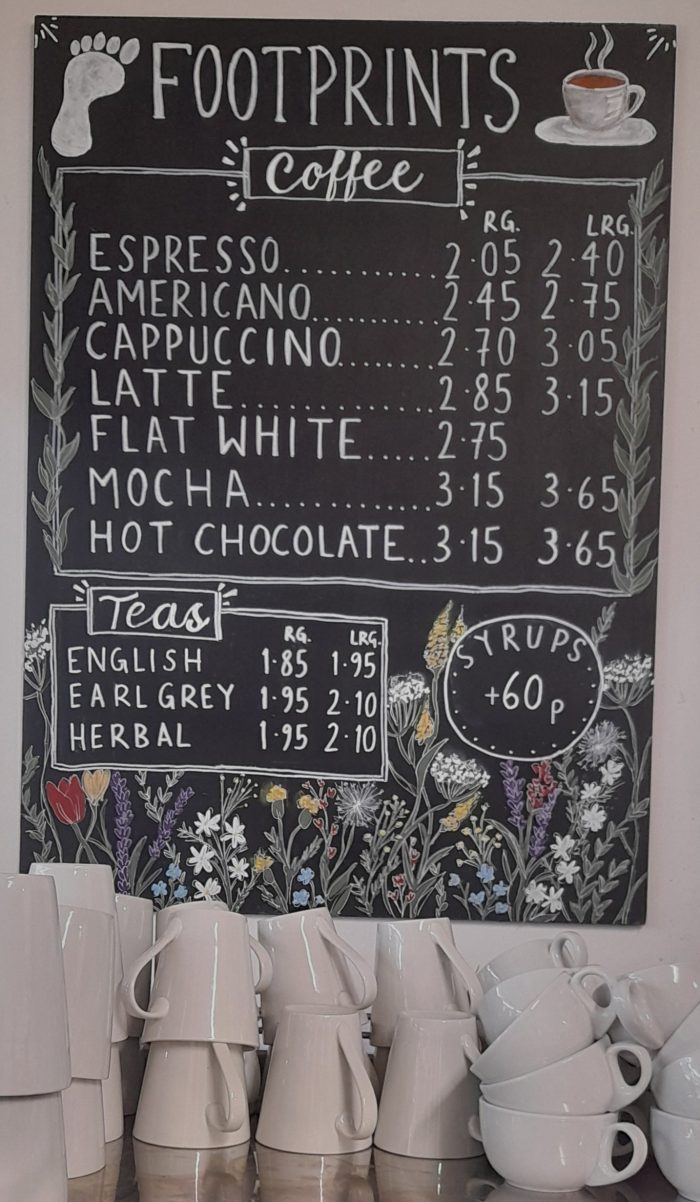 FOOTPRINTS
Coffee
RG. LRG.
ESPRESSO..........2·05 2·40
AMERICANO..........2·45 2·75
CAPPUCCINO........2·70 3·05
LATTE.............2·85 3·15
FLAT WHITE.....2·75
MOCHA.............3·15 3·65
HOT CHOCOLATE..3·15 3·65
Teas
RG. LRG.
ENGLISH 1·85 1·95
EARL GREY 1·95 2·10
HERBAL 1·95 2·10
SYRUPS
+60p